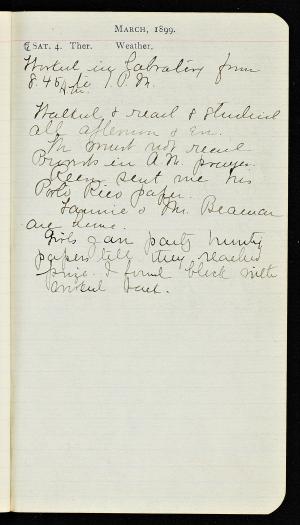 MARCH, 1899.
SAT. 4. Ther. Weather,
Worked in Labratory from
8.45 A.M. to 1 P.M.
Walked & read & studied
all afternoon & Eve.
must not read
in A.M. prayer.
sent me his
Porto Rico paper.
Fannie & Mr. Beaman
are here.
Girls gave party hunting
papers till they reached
prize. I found block with
worked